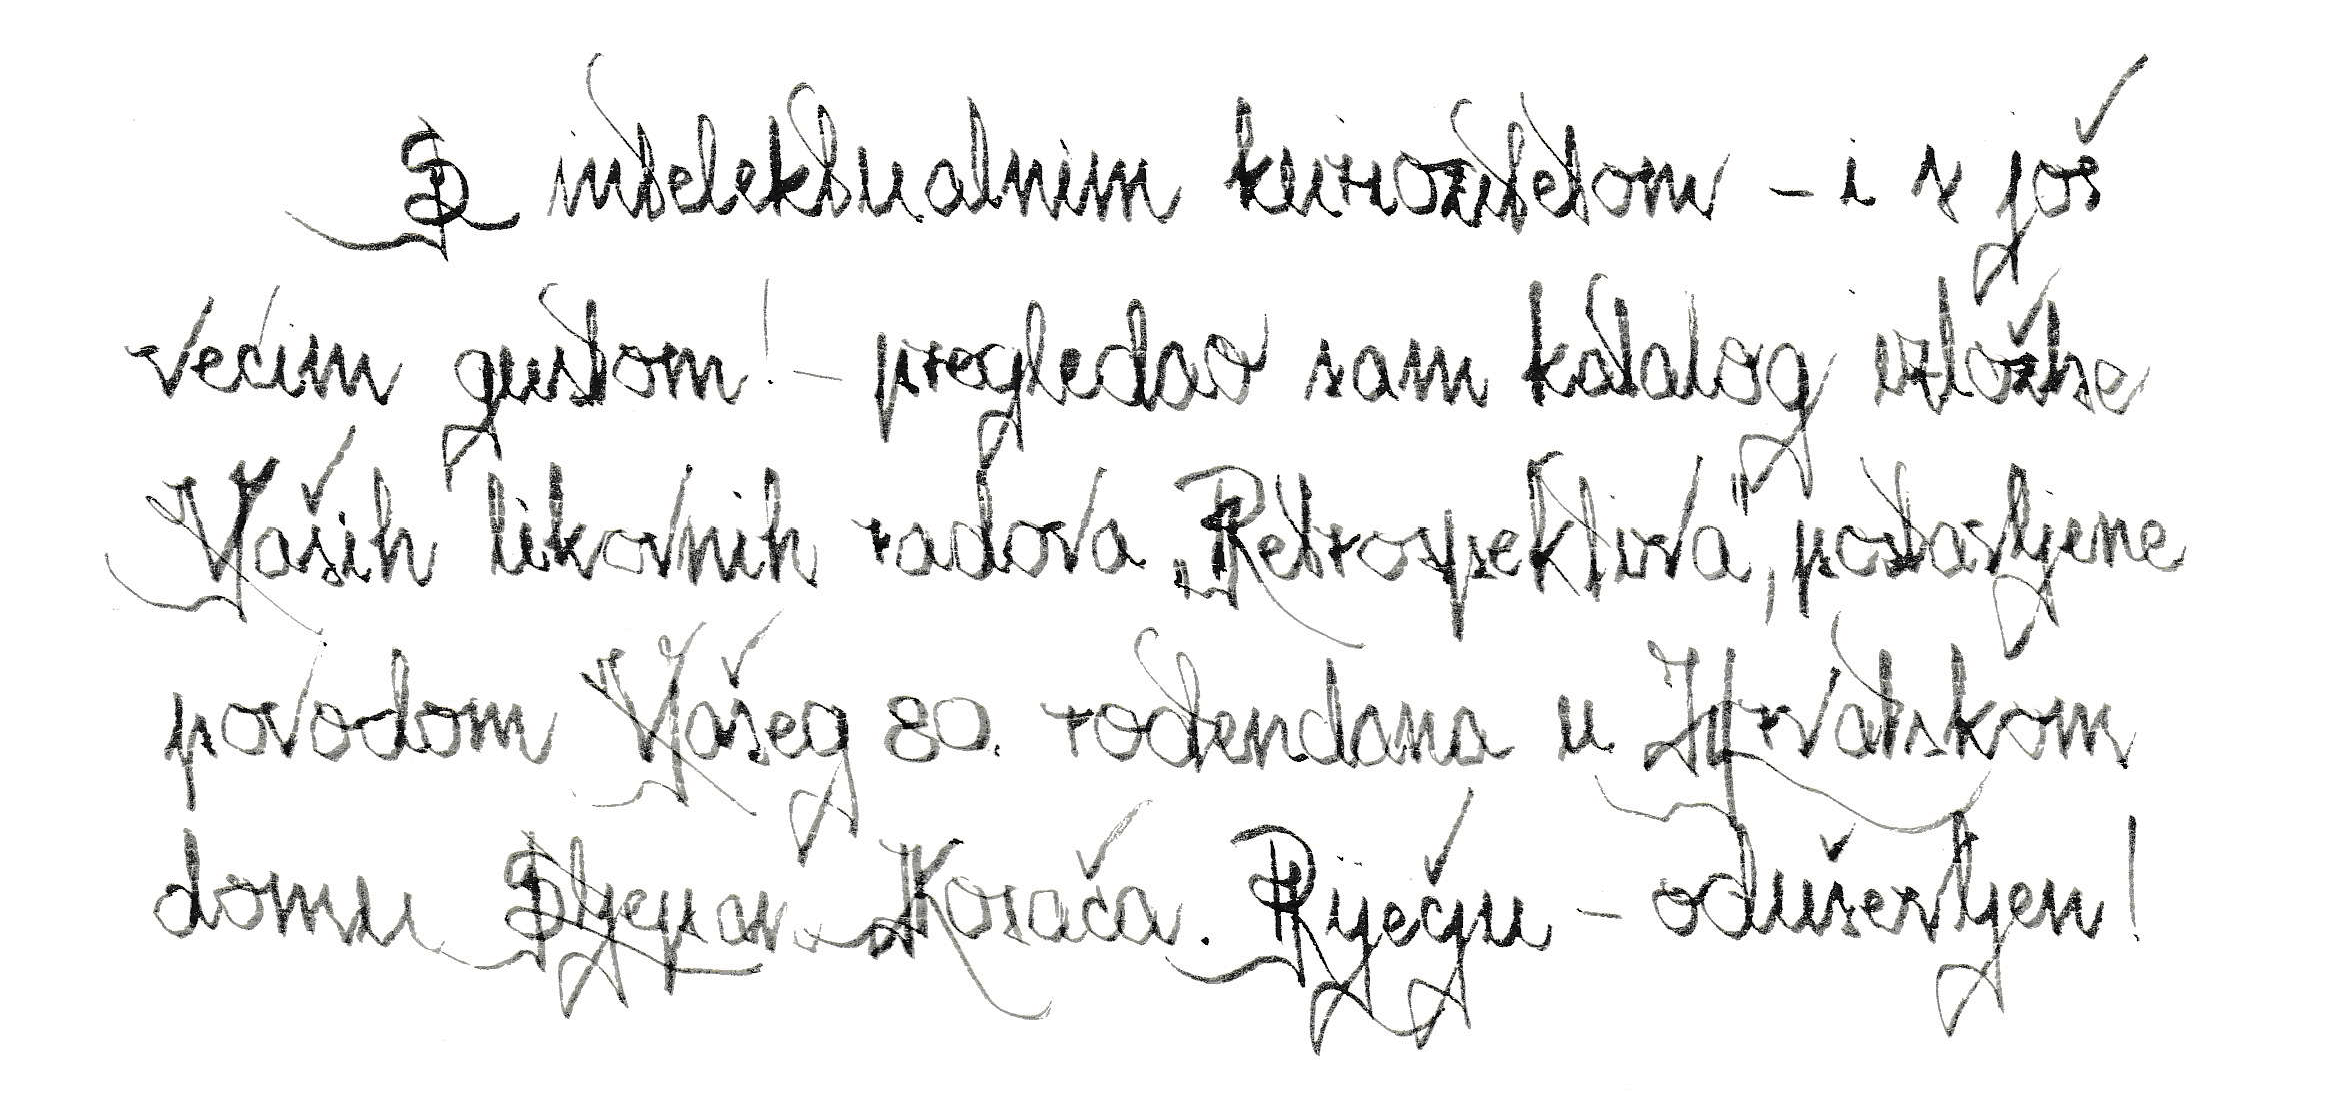 S intelektualnim kuriozitetom – i s još
većim gustom! – pregledao sam katalog izložbe
Vaših likovnih radova „Retrospektiva", postavljene
povodom Vašeg 80. rođendana u Hrvatskom
domu Stjepan Kosača. Riječju – oduševljen!